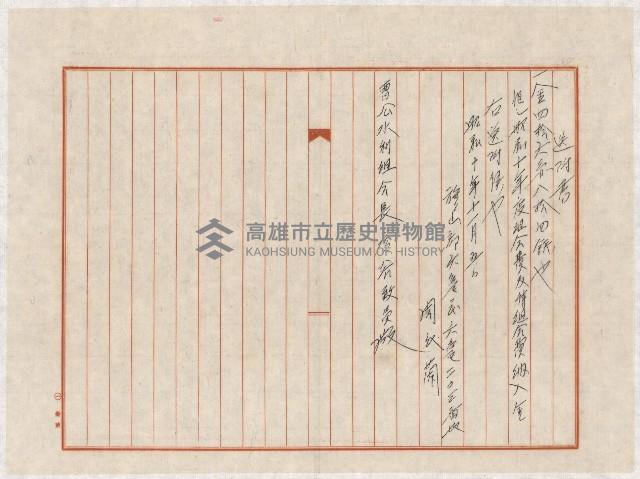 送付書
一金四拾六円八拾四銭也
但シ昭和十年度組合費及特組合費納入金
右送附候也
昭和十年十一月五日
旗山郡大樹庄大樹二〇三番地
周 氏 蘭
曹公水利組合長 殿
高雄市立歷史博物館
KAOHSIUNG MUSEUM OF HISTORY